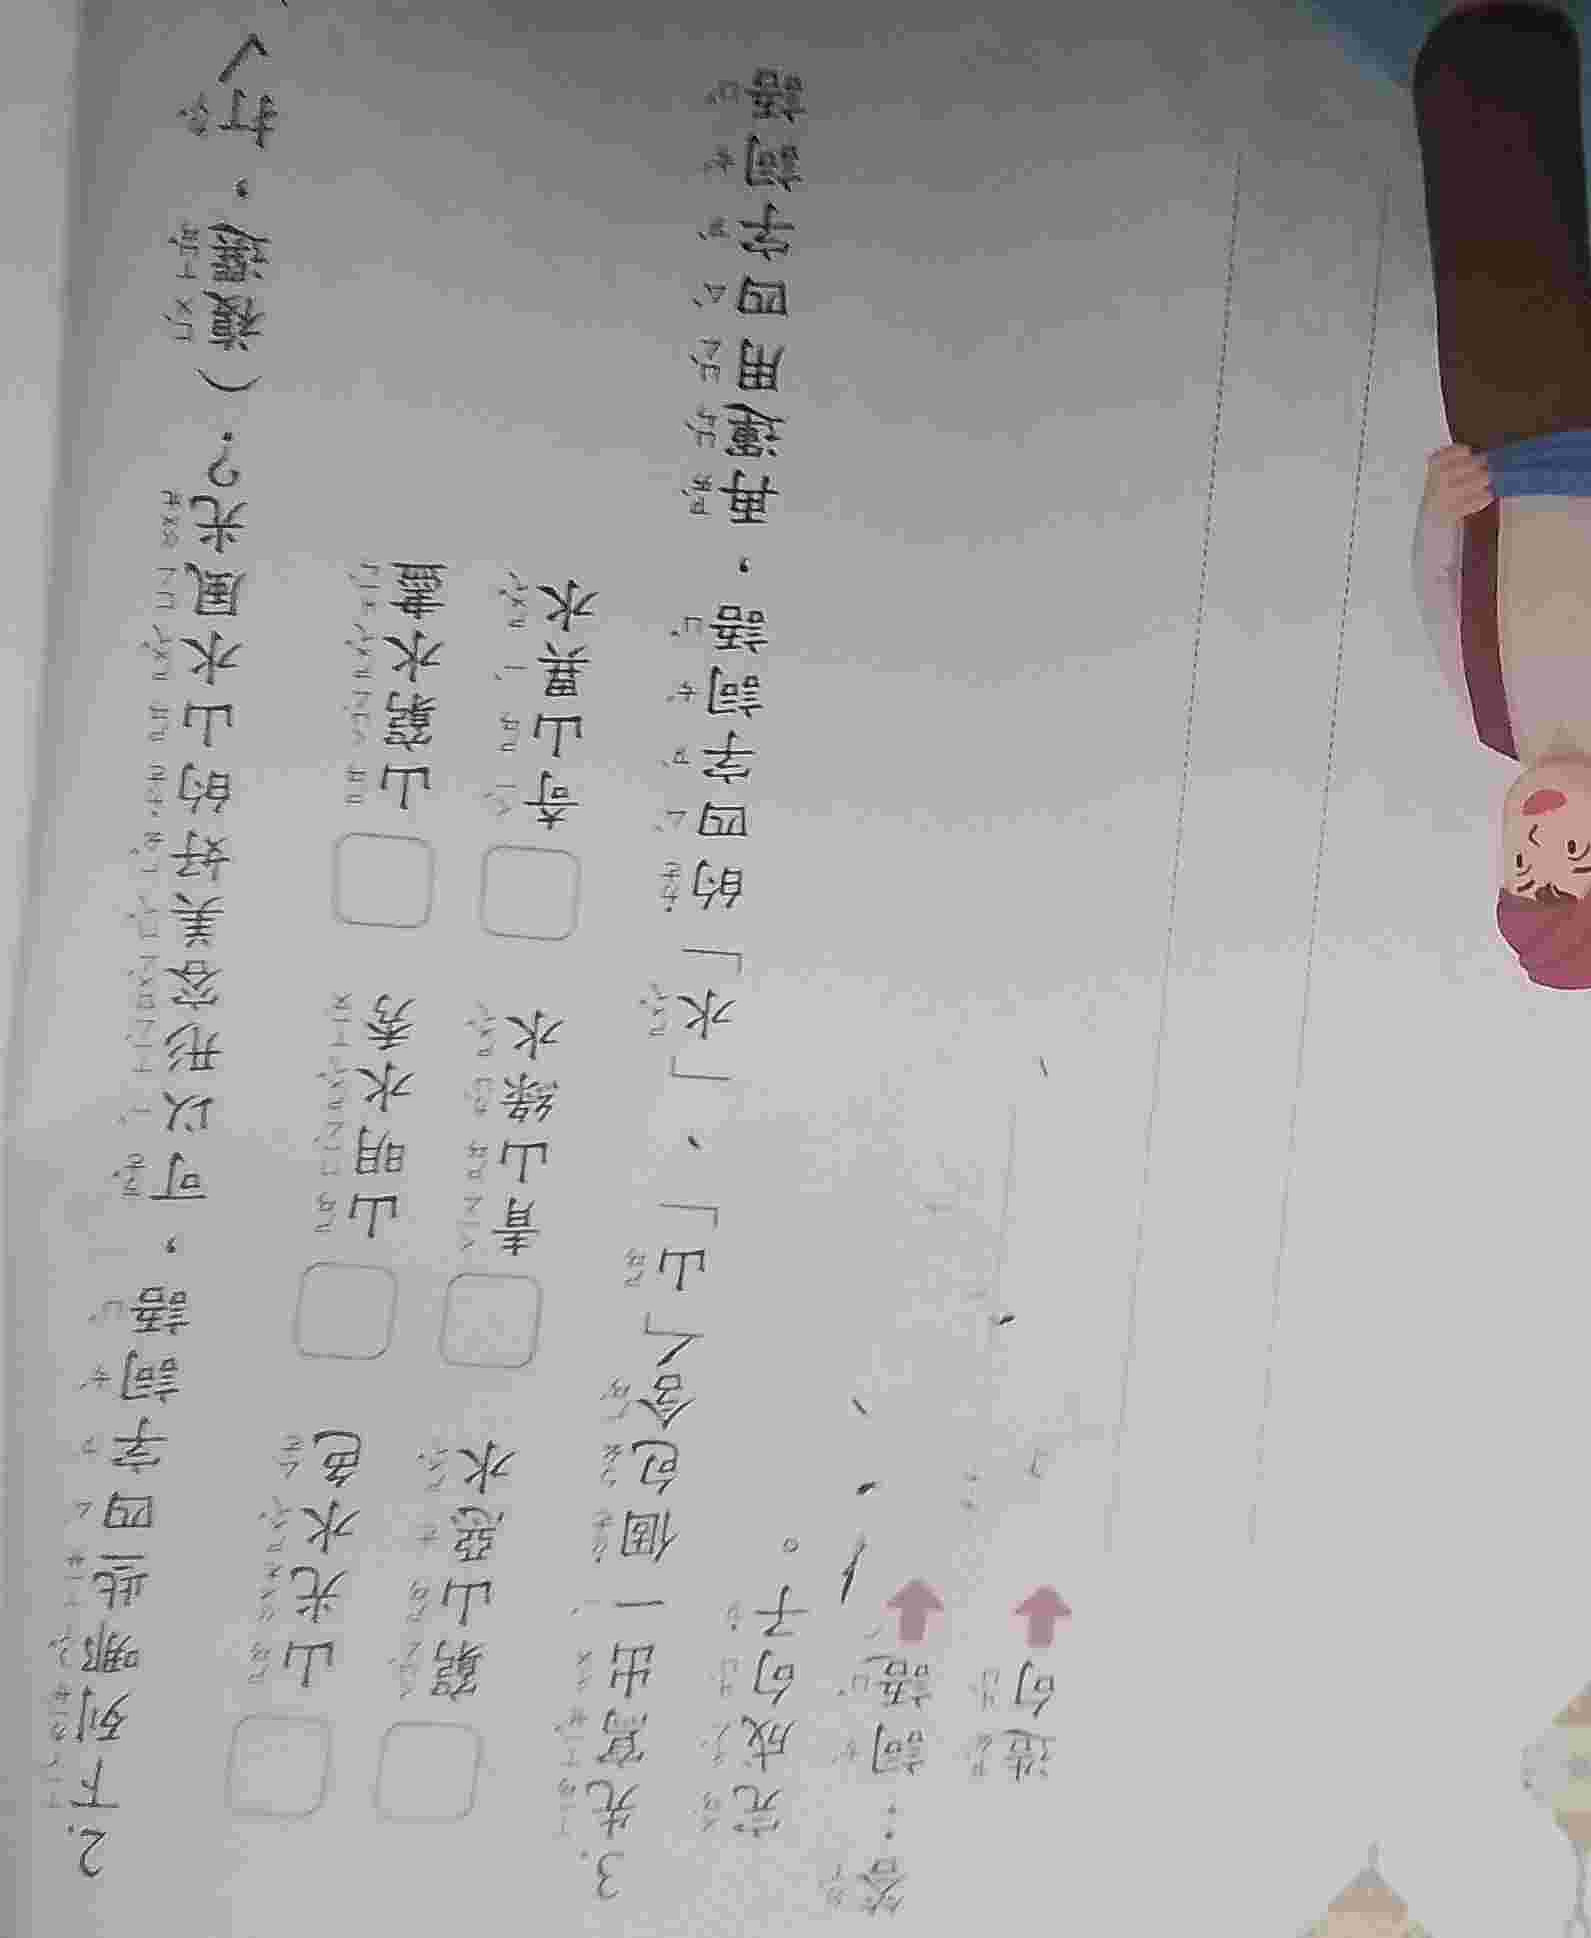 2.下列哪些四字詞語，可以形容美好的山水風光？（複選，打✓
山光水色 山明水秀 山窮水盡
窮山惡水 青山綠水 奇山異水
3.先寫出一個包含「山」、「水」的四字詞語，再運用四字詞語
完成句子。
答：詞語
造句